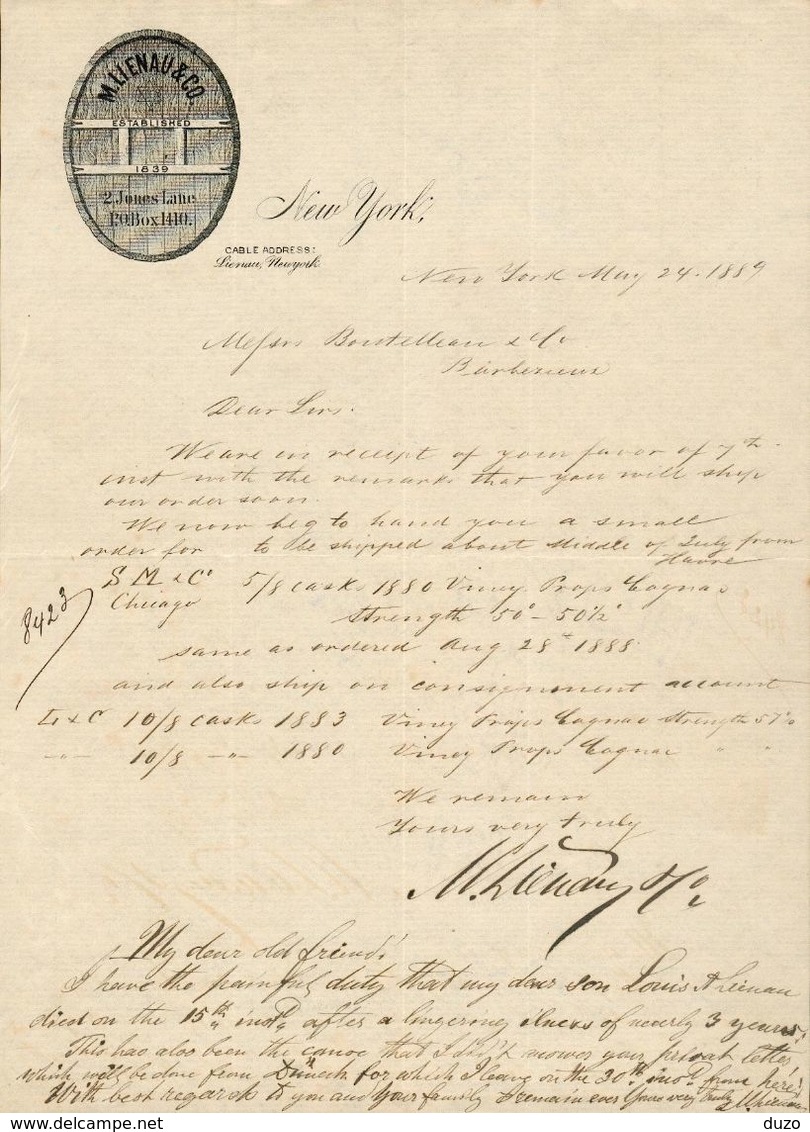 M. LIENAU & CO.
ESTABLISHED
1839
2 Jones Lane
P.O. Box 1410.
New York,
CABLE ADDRESS:
Lienau, Newyork
New York May 24. 1889
Messrs Boutelleau & Co
Barbezieux
Dear Sirs.
We are in receipt of your favor of 7th
inst with the remarks that you will ship
our order soon.
We now beg to hand you a small
order for to be shipped about Middle of July from
Havre
S M & Co 5/8 casks 1880 Viney. Props Cognac
Chicago
8423
strength 50° - 50½°
same as ordered Aug 28th 1888.
and also ship on consignment account
L & C 10/8 casks 1883 Viney Props Cognac strength 57%
-"- 10/8 -"- 1880 Viney Props Cognac " "
We remain
Yours very truly
M. Lienau & Co
My dear old friend!
I have the painful duty that my dear son Louis A Lienau
died on the 15th inst after a lingering ilness of nearly 3 years!
This has also been the cause that I didn't answer your privat letter
which will be done from for which I leave on the 30th inst from here!
With best regards to you and your family I remain ever Yours very truly M Lienau
duzo